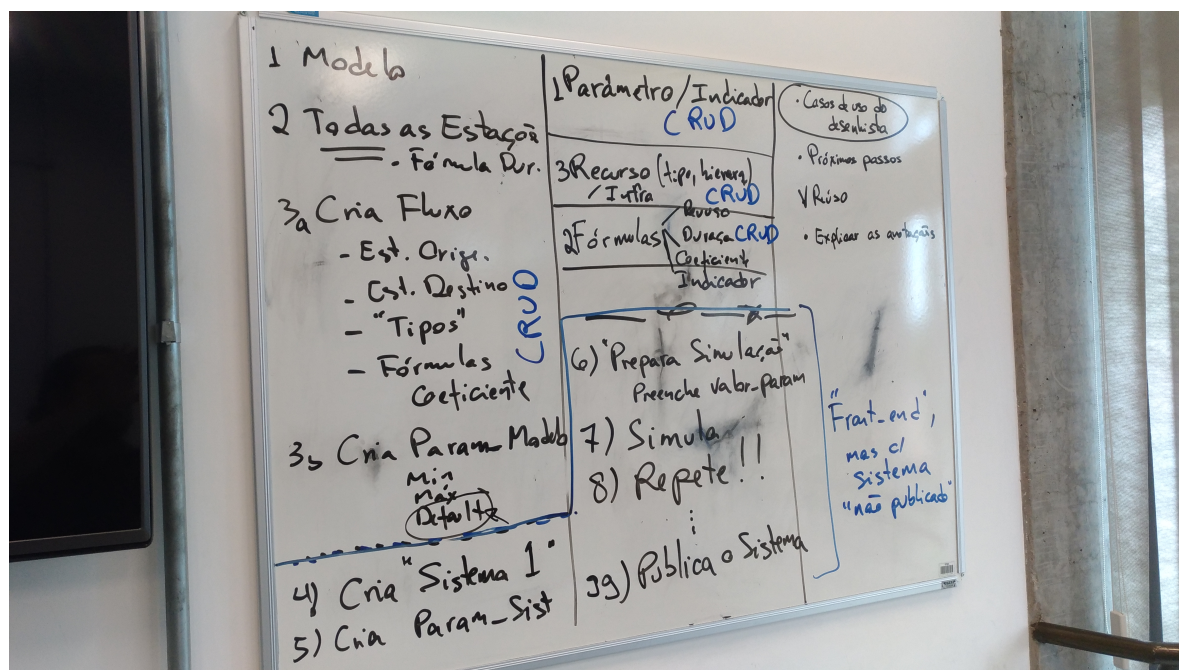 1 Modelo
2 Todas as Estaçõs
- Fórmula Dur.
3a Cria Fluxo
- Est. Orige.
- Est. Destino
- "Tipos"
- Fórmulas
Coeficiente
CRUD
3b Cria Param_Modelo
Min
máx
Default
4) Cria "Sistema 1"
5) Cria Param_Sist
1 Parámetro/Indicador
CRUD
3 Recurso (tipo, hierarq)
/ Infra CRUD
2 Fórmulas
Duraçao CRUD
Coeficiente
Indicador
6) "Prepara Simulação"
Preenche valor_param
7) Simula
8) Repete!!
⋮
99) Publica o Sistema
• Casos de uso do
desenhista
• Próximos passos
V Reúso
• Explicar as anotações
"Front_end",
mas c/
sistema
"não publicado"